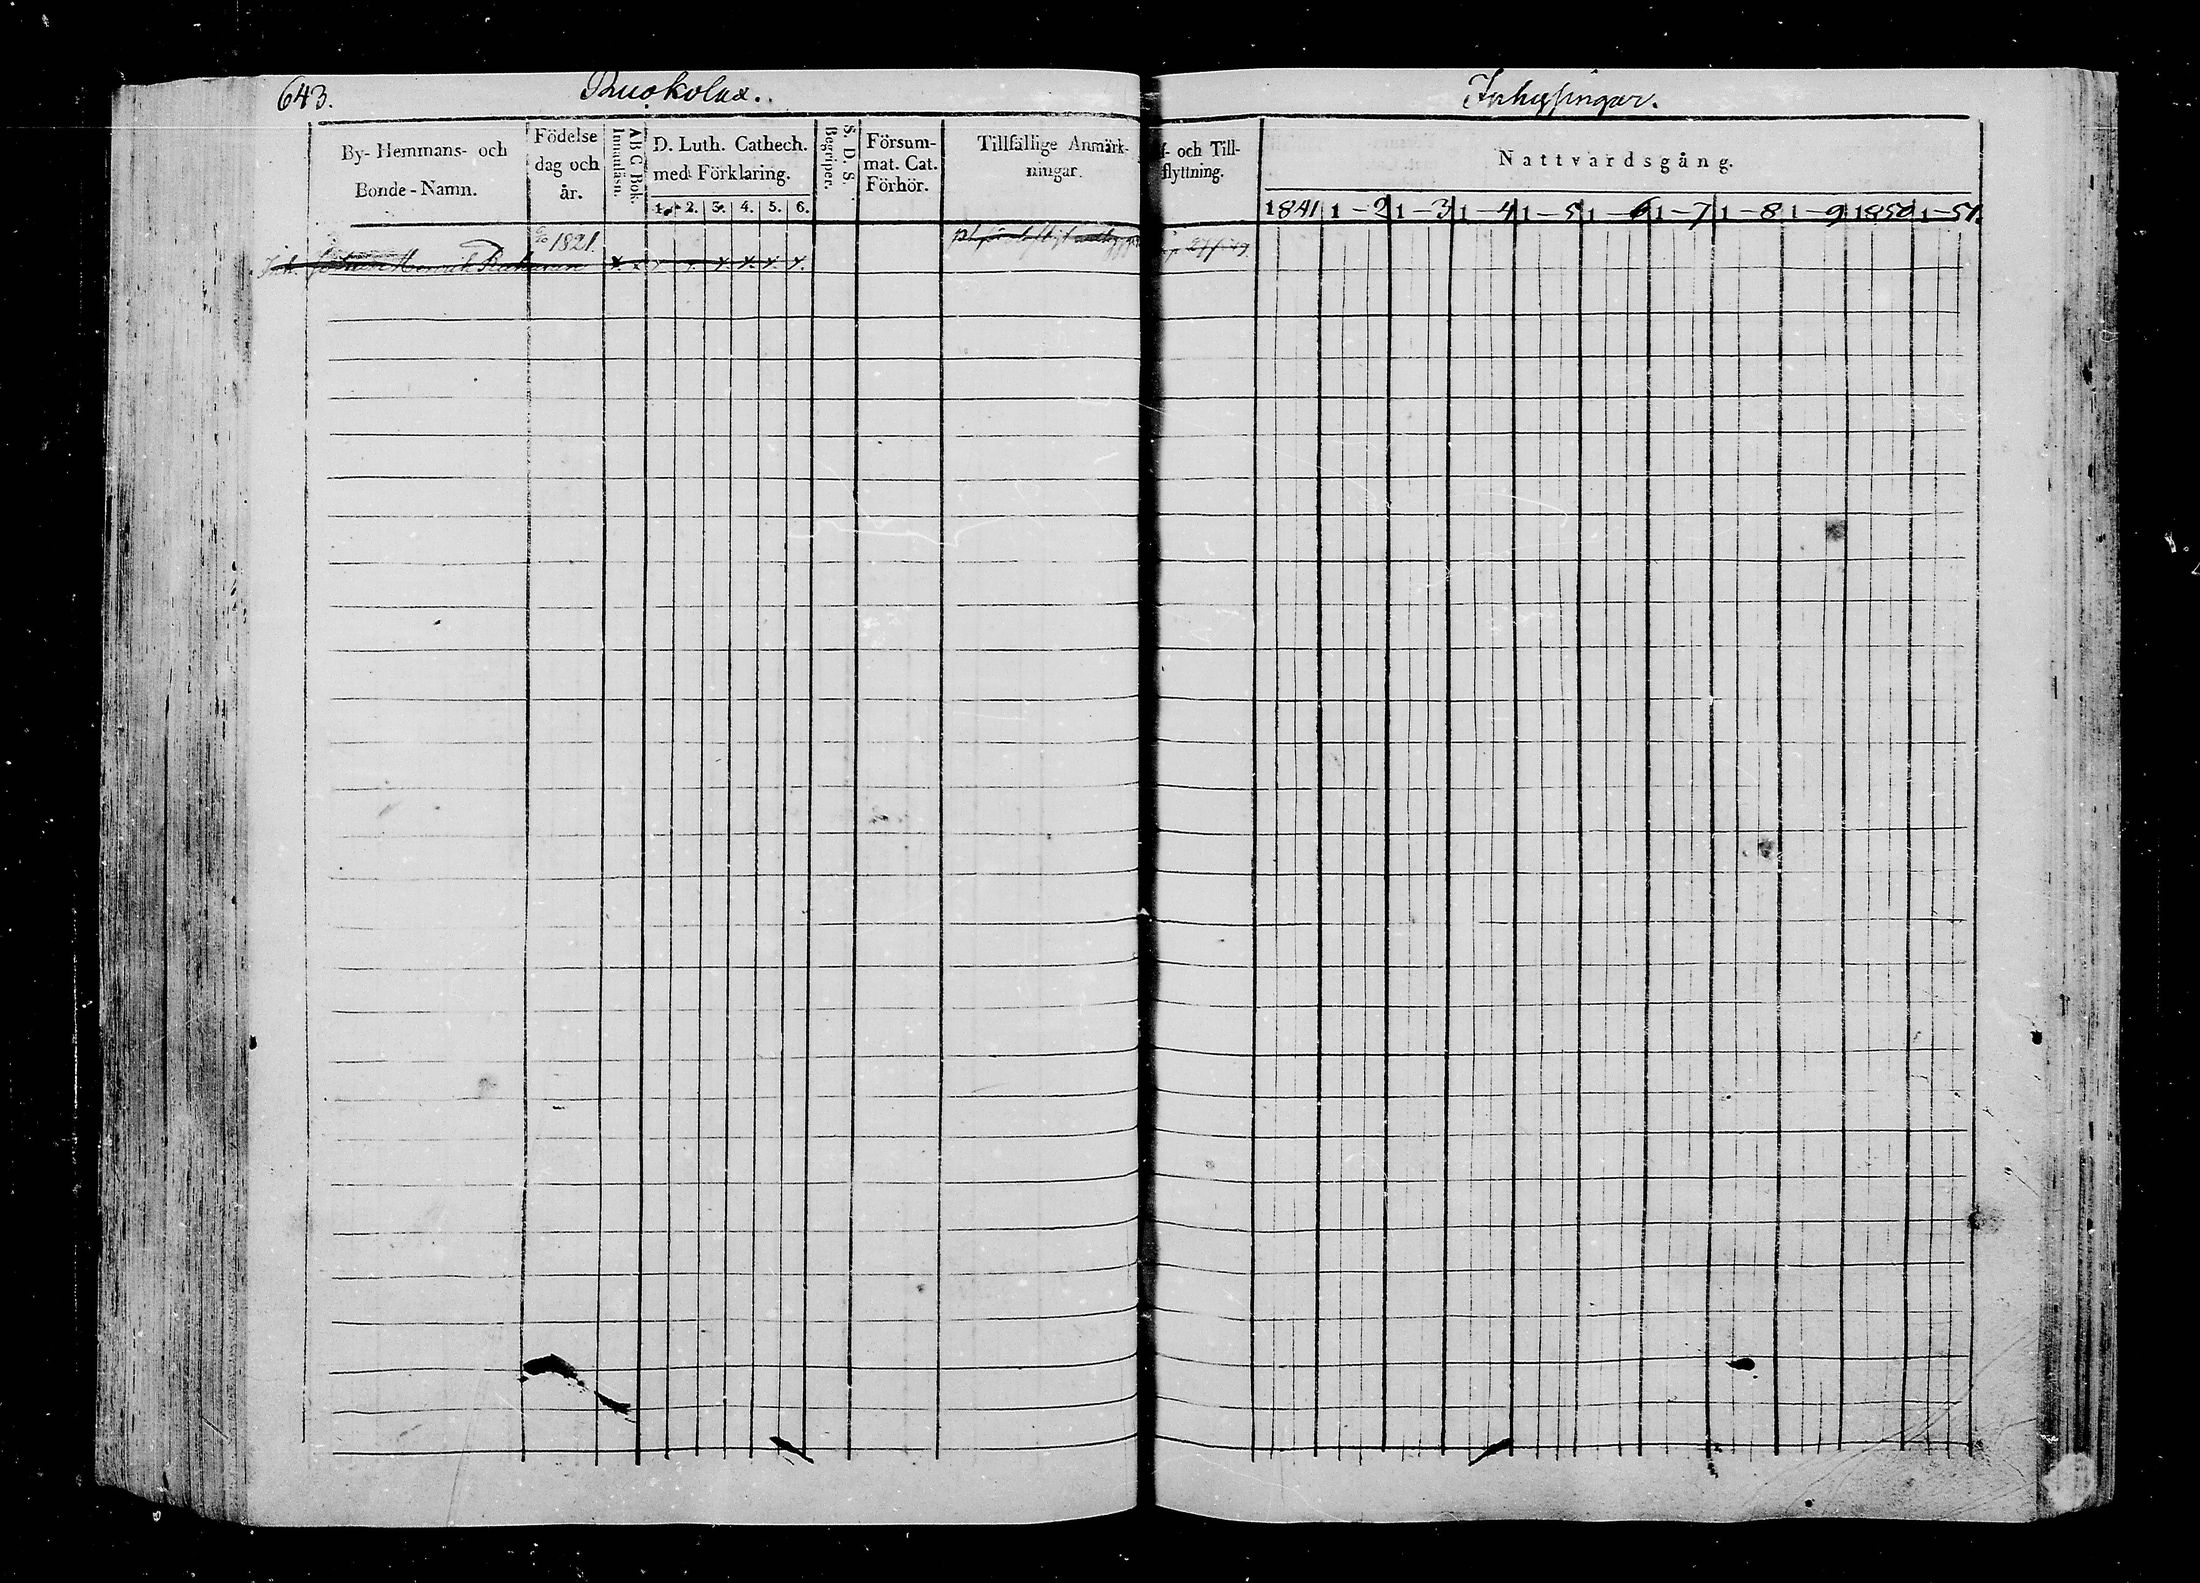 643.
Ruokolax.
Inhysingar.
By- Hemmans- och
Bonde-Namn.
Födelse
dag och
år.
Innanläsn.
A B C Bok.
D. Luth. Cathech.
med Förklaring.
1. 2. 3. 4. 5. 6.
Begriper.
S. D. S.
Försum-
mat. Cat.
Förhör.
Tillfällige Anmärk-
ningar.
- och Till-
flyttning.
Nattvardsgång.
1841 1-2 1-3 1-4 1-5 1-6 1-7 1-8 1-9 1850 1-51.
1821.
Henrik